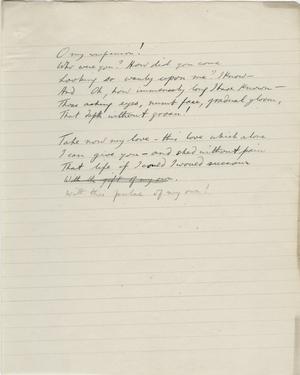 O my companion!
Who were you? How did you come
Looking so wanly upon me? I know—
And Oh, how immensely long I have known—
Those asking eyes, numb face, gradual gloom,
That depth without groan!
Take now my love – this love which alone
I can give you – and shed without pain
That life if I could I would succour
With the gift of my own.
With this pulse of my own!